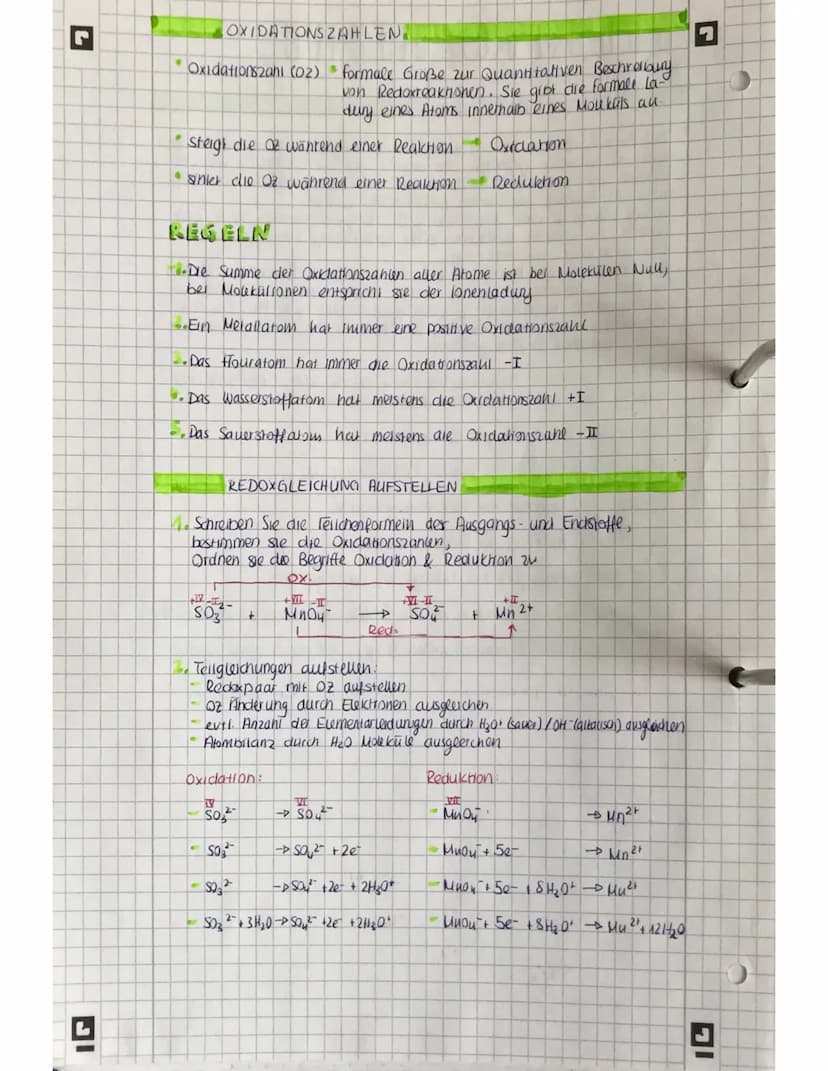 OXIDATIONSZAHLEN
• Oxidationszahl (OZ) • formale Größe zur Quantitativen Beschreibung
von Redoxreaktionen. Sie gibt die formale La-
dung eines Atoms innerhalb eines Moleküls an.
• steigt die OZ während einer Reaktion → Oxidation
• sinkt die OZ während einer Reaktion → Reduktion
REGELN
1. Die Summe der Oxidationszahlen aller Atome ist bei Molekülen Null,
bei Molekülionen entspricht sie der Ionenladung
2. Ein Metallatom hat immer eine positive Oxidationszahl
3. Das Flouratom hat immer die Oxidationszahl -I
4. Das Wasserstoffatom hat meistens die Oxidationszahl +I
5. Das Sauerstoffatom hat meistens die Oxidationszahl -II
REDOXGLEICHUNG AUFSTELLEN
1. Schreiben Sie die Teilchenformeln der Ausgangs- und Endstoffe,
bestimmen sie die Oxidationszahlen,
Ordnen sie die Begriffe Oxidation & Reduktion zu
Ox.
+IV -II +VII -II +VI -II +II
SO₃²⁻ + MnO₄⁻ → SO₄²⁻ + Mn²⁺
Red.
2. Teilgleichungen aufstellen:
- Redoxpaar mit OZ aufstellen
- OZ Änderung durch Elektronen ausgleichen
- evtl. Anzahl der Elementarladungen durch H₃O⁺ (sauer) / OH⁻ (alkalisch) ausgleichen
- Atombilanz durch H₂O Moleküle ausgleichen
Oxidation: Reduktion:
IV VI VII
- SO₃²⁻ → SO₄²⁻ - MnO₄⁻ → Mn²⁺
- SO₃²⁻ → SO₄²⁻ + 2e⁻ - MnO₄⁻ + 5e⁻ → Mn²⁺
- SO₃²⁻ → SO₄²⁻ + 2e⁻ + 2H₃O⁺ - MnO₄⁻ + 5e⁻ + 8H₃O⁺ → Mn²⁺
- SO₃²⁻ + 3H₂O → SO₄²⁻ + 2e⁻ + 2H₃O⁺ - MnO₄⁻ + 5e⁻ + 8H₃O⁺ → Mn²⁺ + 12H₂O